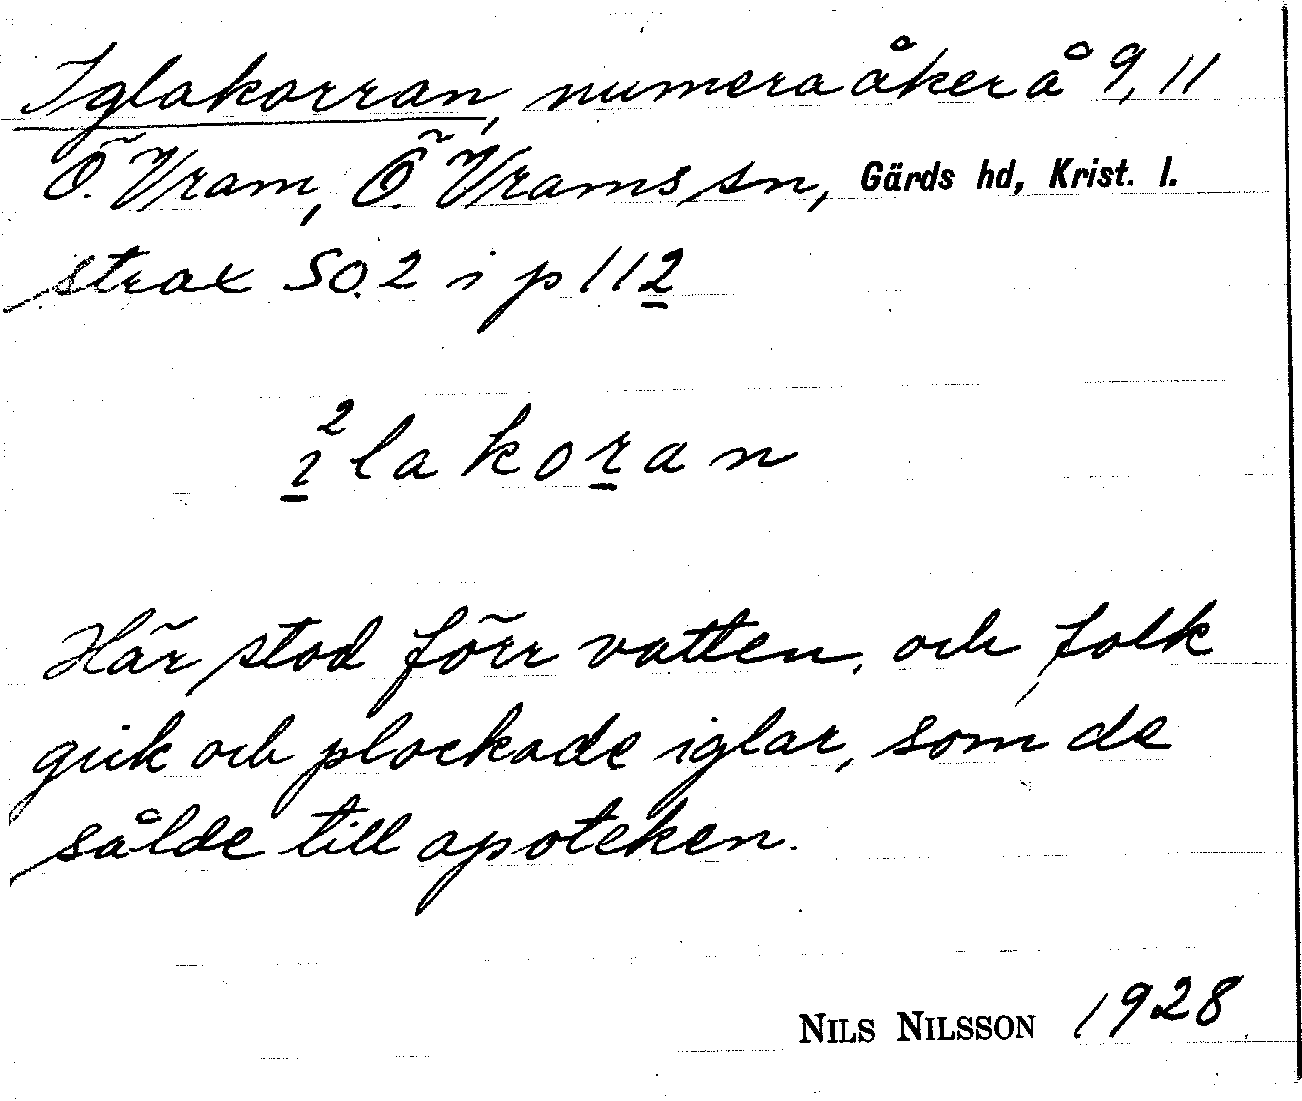 Iglakorran, numera åker å 9, 11
Ö. Vram, Ö. Vrams sn, Gärds hd, Krist. l.
strax SO. 2 i p 112
i²lakoran
Här stod förr vatten, och folk
gick och plockade iglar, som de
sålde till apoteken.
NILS NILSSON 1928